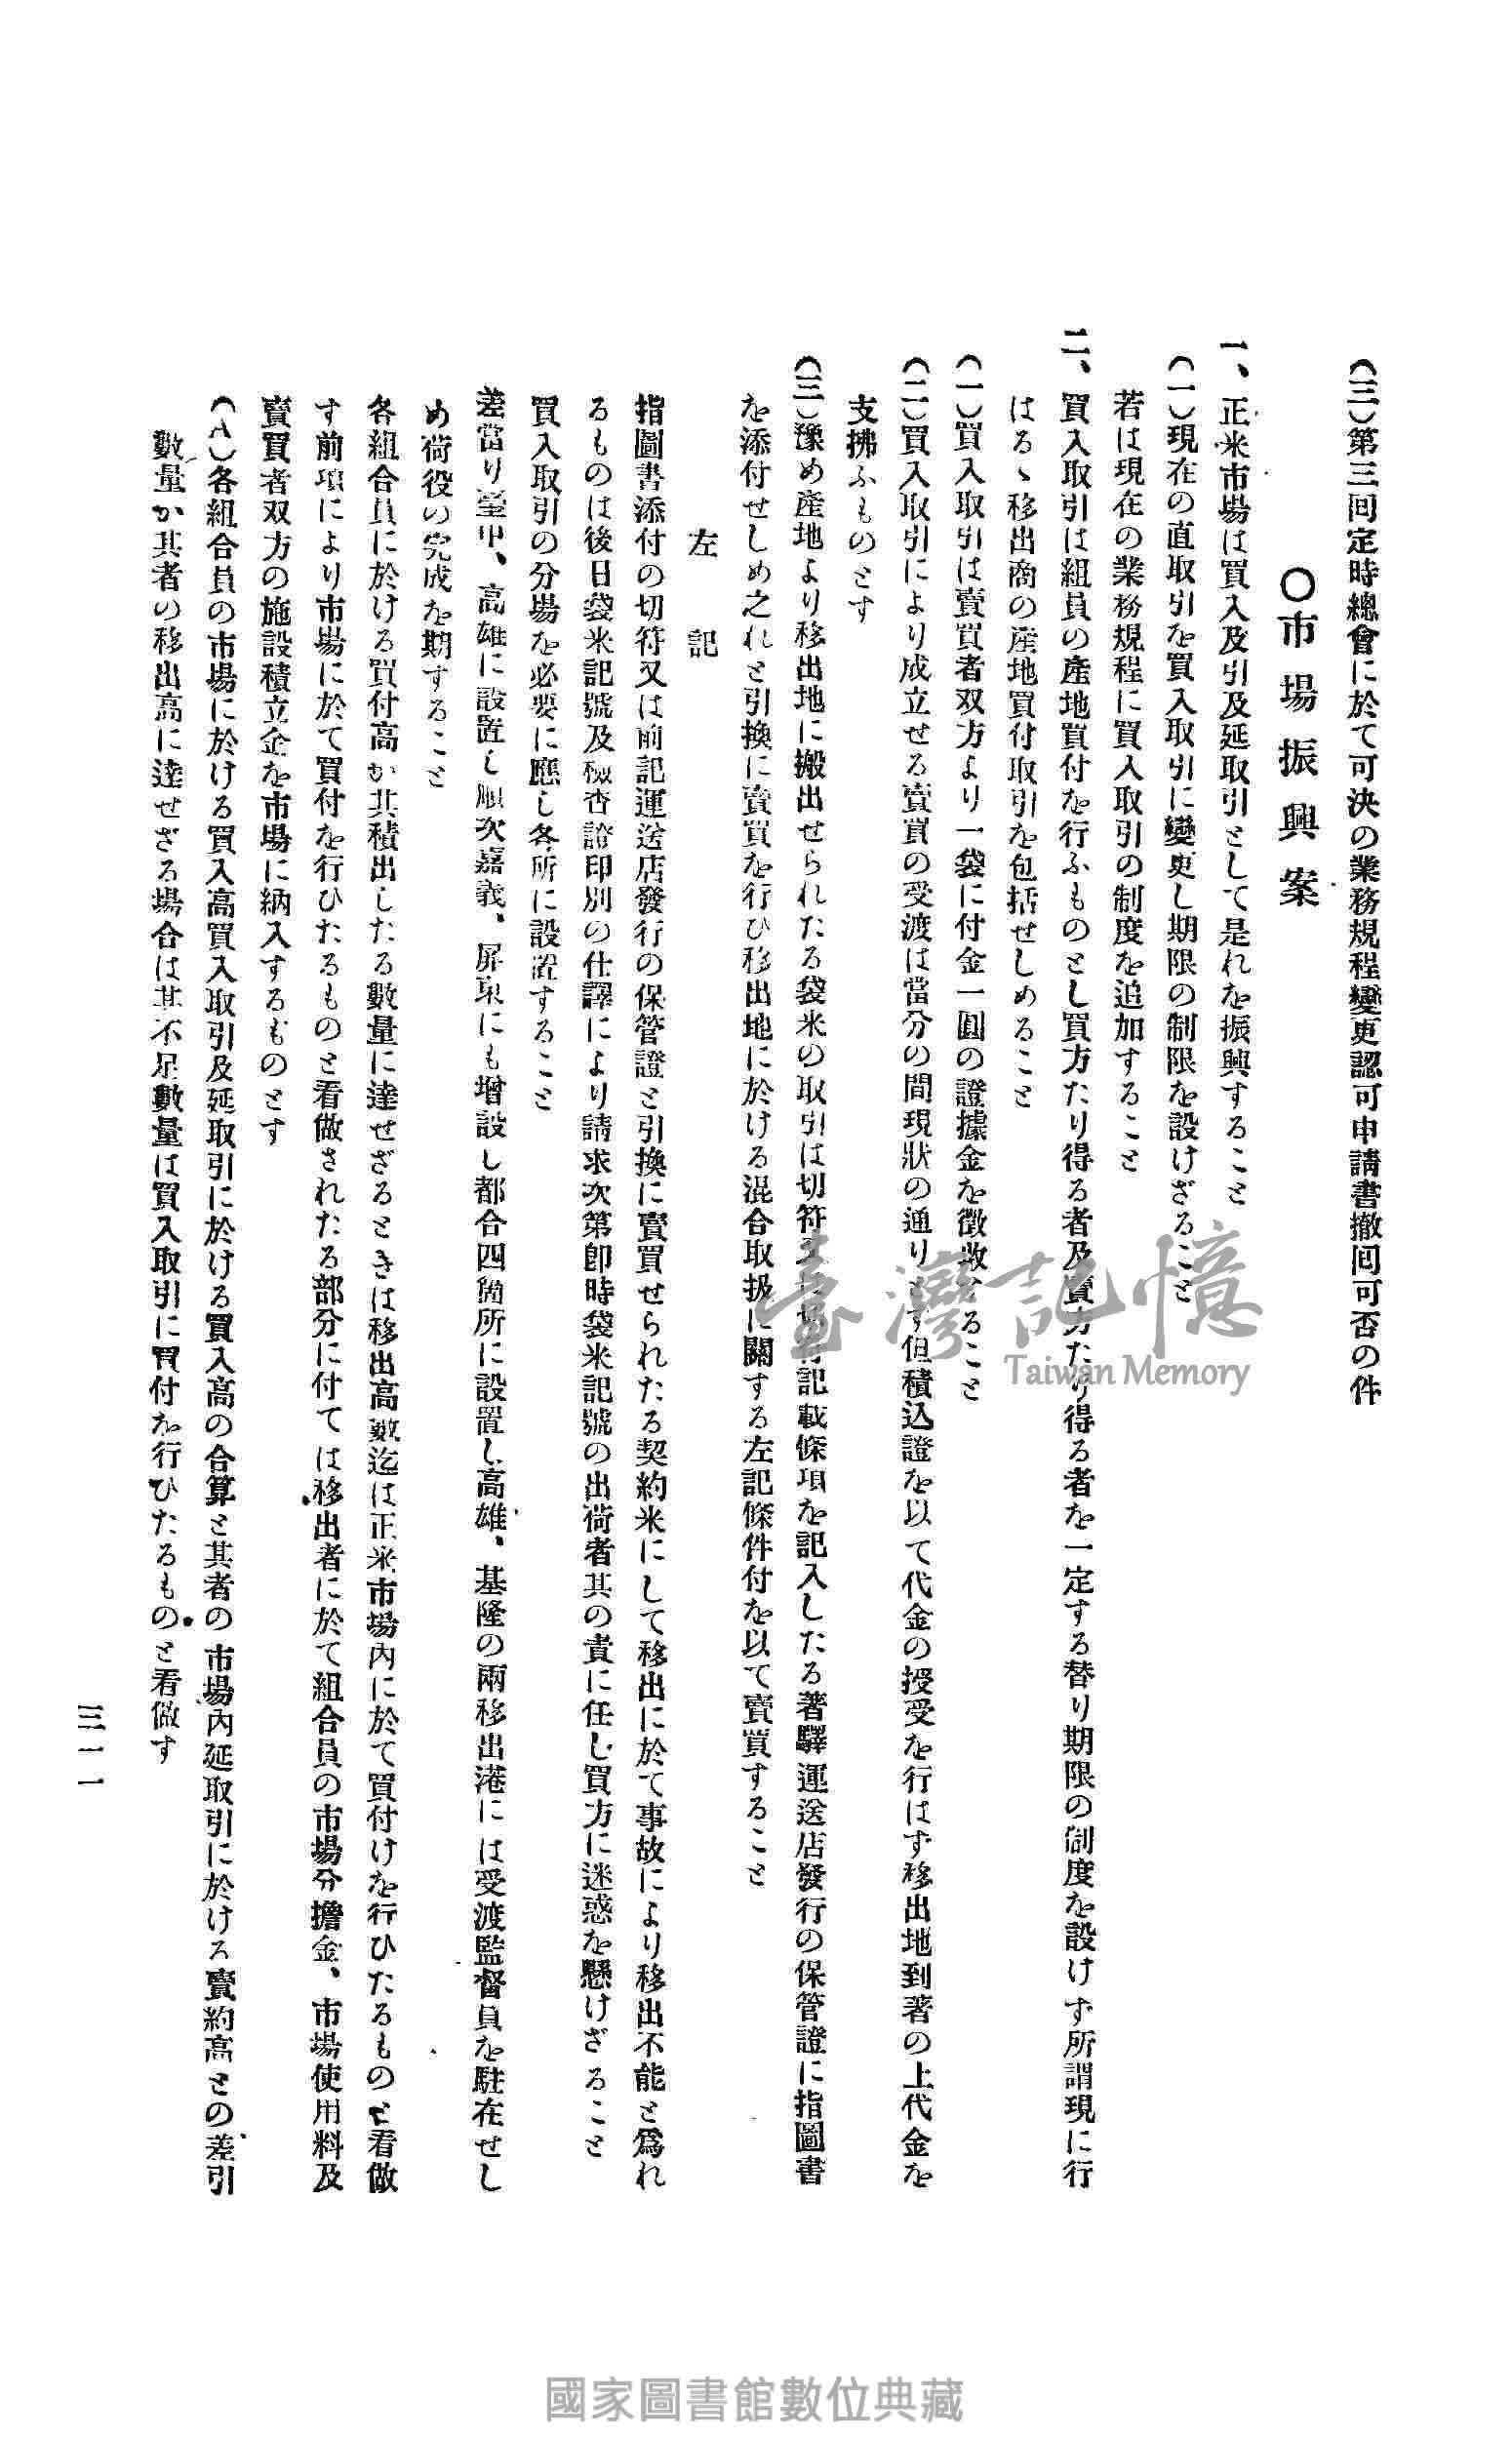 (三)第三囘定時總會に於て可決の業務規程變更認可申請書撤囘可否の件
〇市場振興案
一、正米市場は買入及引及延取引として是れを振興すること
(一)現在の直取引を買入取引に變更し期限の制限を設けざること
若は現在の業務規程に買入取引の制度を追加すること
二、買入取引は組員の産地買付を行ふものとし買方たり得る者及賣方たり得る者を一定する替り期限の制度を設けず所謂現に行
はるゝ移出商の産地買付取引を包括せしめること
(一)買入取引は賣買者双方より一袋に付金一圓の證據金を徴收することと
(二)買入取引により成立せる賣買の受渡は當分の間現狀の通りとす但積込證を以て代金の授受を行はず移出地到著の上代金を
支拂ふものとす
(三)豫め産地より移出地に搬出せられたる袋米の取引は切符又は切符記載條項を記入したる著驛運送店發行の保管證に指圖書
を添付せしめ之れと引換に賣買を行ひ移出地に於ける混合取扱に關する左記條件付を以て賣買すること
左記
指圖書添付の切符又は前記運送店發行の保管證と引換に賣買せられたる契約米にして移出に於て事故により移出不能と爲れ
るものは後日袋米記號及檢査證印別の仕譯により請求次第卽時袋米記號の出荷者其の責に任し買方に迷惑を懸けざること
買入取引の分場を必要に應し各所に設置すること
差當り臺中、高雄に設置し順次嘉義、屏東にも增設し都合四箇所に設置し高雄、基隆の兩移出港には受渡監督員を駐在せし
め荷役の完成を期すること
各組合員に於ける買付高か其積出したる數量に達せざるときは移出高數迄は正米市場內に於て買付けを行ひたるものと看做
す前項により市場に於て買付を行ひたるものと看做されたる部分に付ては移出者に於て組合員の市場分擔金、市場使用料及
賣買者双方の施設積立金を市場に納入するものとす
(A)各組合員の市場に於ける買入高買入取引及延取引に於ける買入高の合算と其者の市場內延取引に於ける賣約高との差引
數量か其者の移出高に達せざる場合は其不足數量は買入取引に買付を行ひたるものと看做す
三一一
臺灣記憶
Taiwan Memory
國家圖書館數位典藏